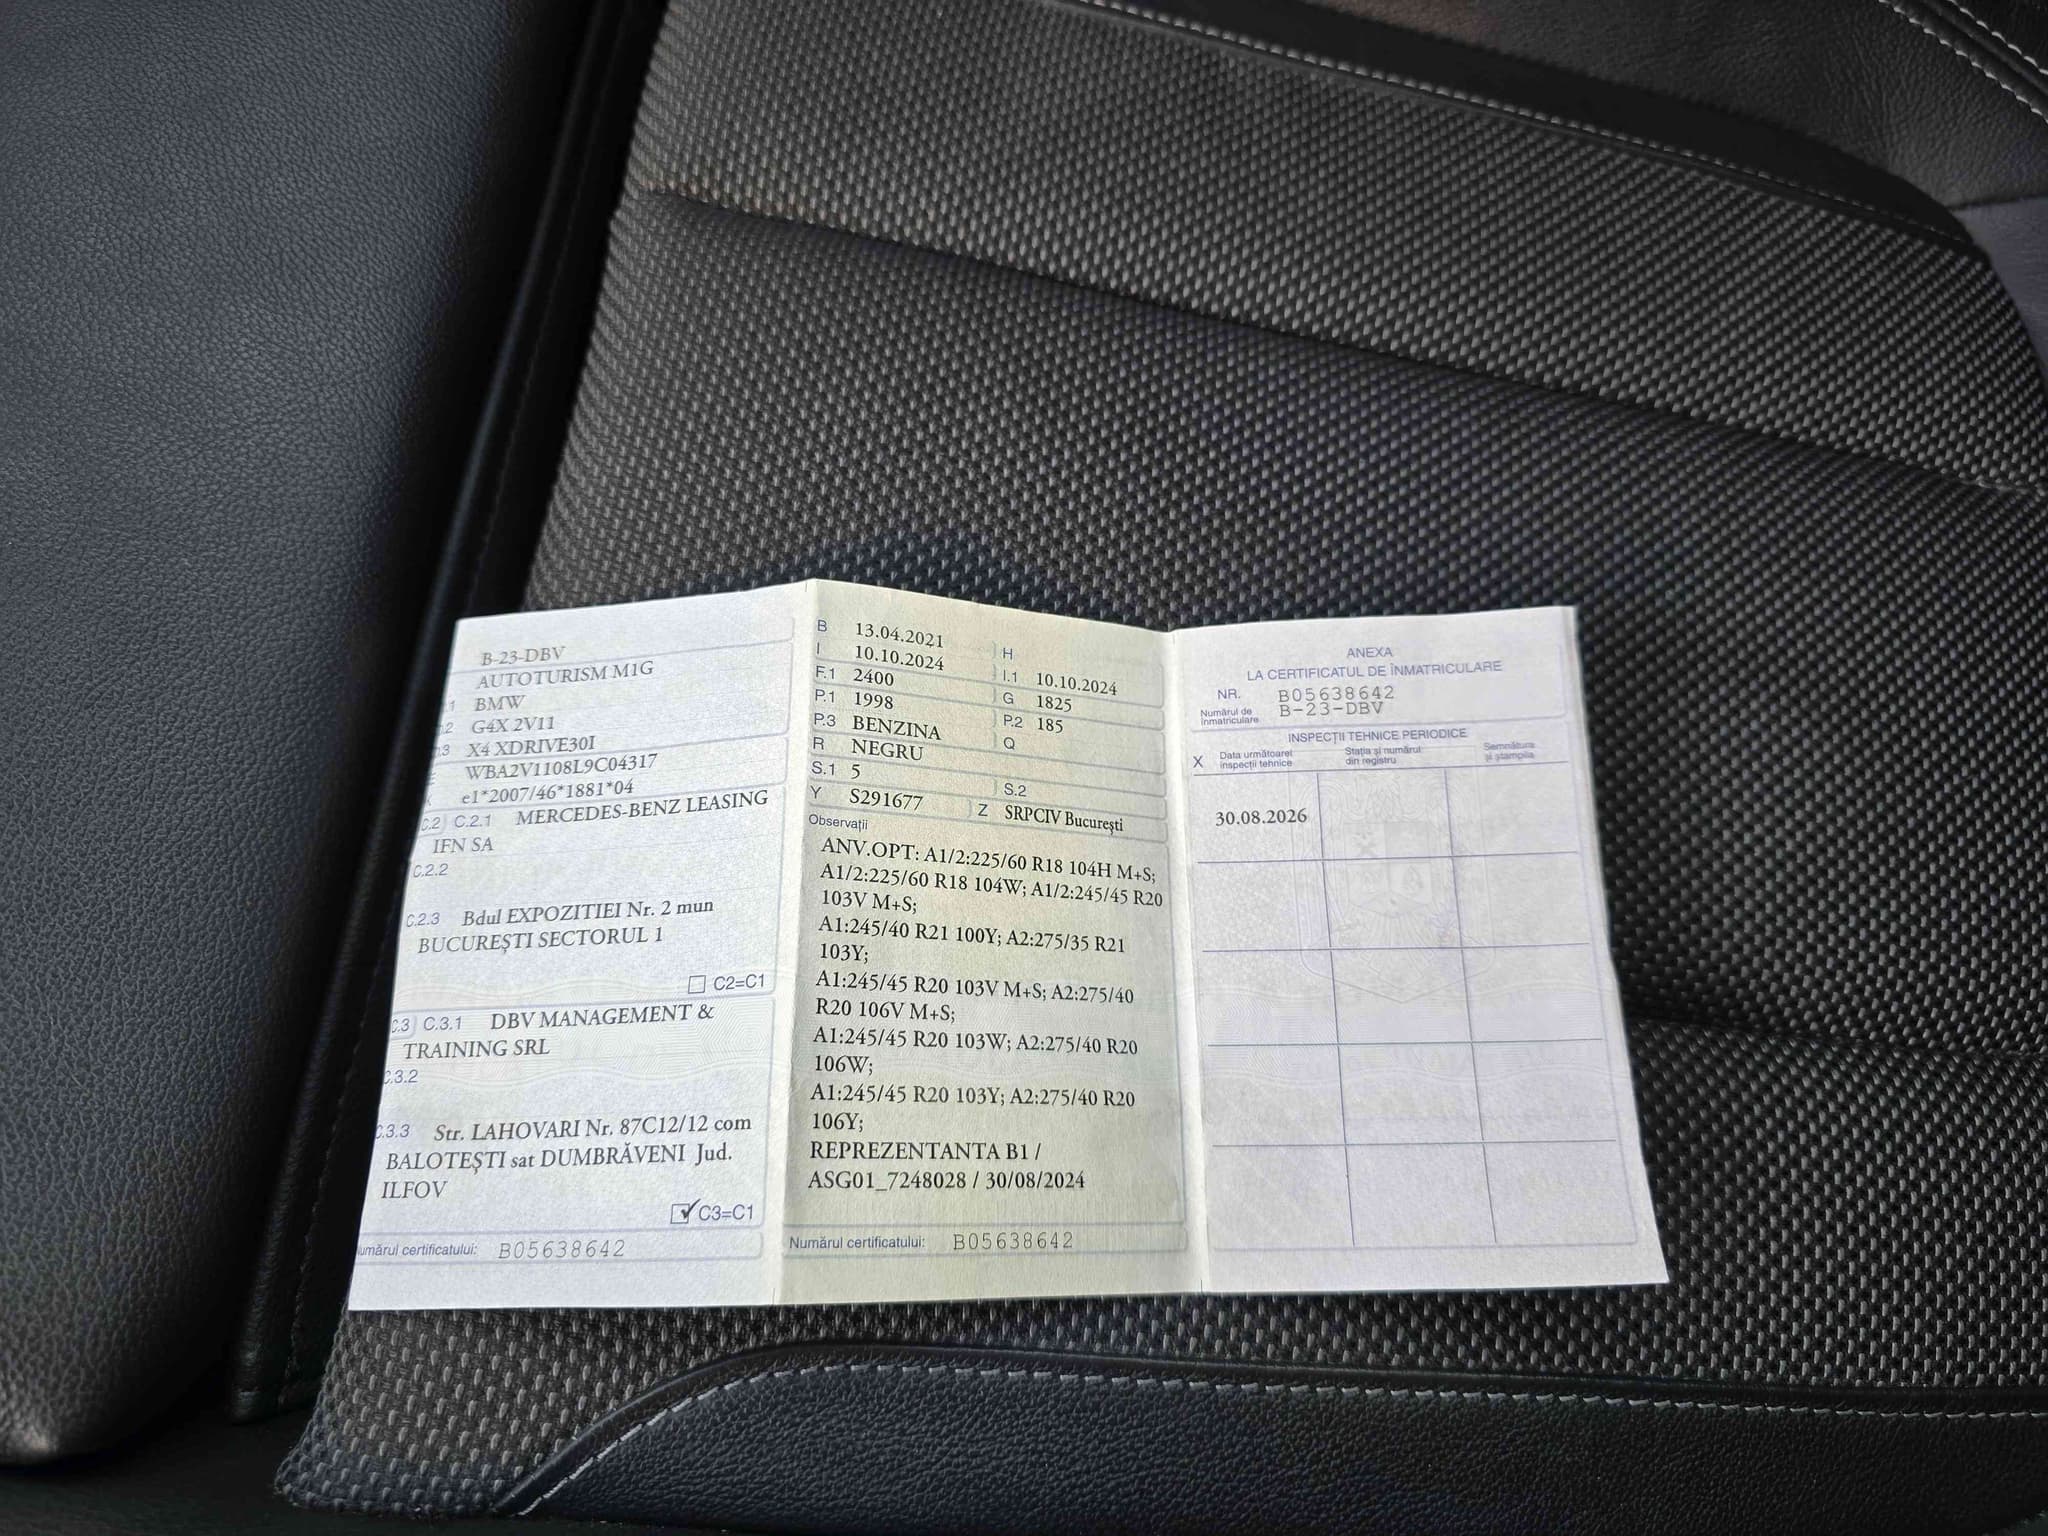 B-23-DBV
AUTOTURISM M1G
.1 BMW
.2 G4X 2V11
.3 X4 XDRIVE30I
WBA2V1108L9C04317
e1*2007/46*1881*04
C.2) C.2.1 MERCEDES-BENZ LEASING
IFN SA
C.2.2
C.2.3 Bdul EXPOZITIEI Nr. 2 mun
BUCUREȘTI SECTORUL 1
C2=C1
C.3) C.3.1 DBV MANAGEMENT &
TRAINING SRL
C.3.2
C.3.3 Str. LAHOVARI Nr. 87C12/12 com
BALOTEȘTI sat DUMBRĂVENI Jud.
ILFOV
C3=C1
umărul certificatului: B05638642
B 13.04.2021 H
I 10.10.2024 I.1 10.10.2024
F.1 2400 G 1825
P.1 1998 P.2 185
P.3 BENZINA Q
R NEGRU
S.1 5 S.2
Y S291677 Z SRPCIV București
Observații
ANV.OPT: A1/2:225/60 R18 104H M+S;
A1/2:225/60 R18 104W; A1/2:245/45 R20
103V M+S;
A1:245/40 R21 100Y; A2:275/35 R21
103Y;
A1:245/45 R20 103V M+S; A2:275/40
R20 106V M+S;
A1:245/45 R20 103W; A2:275/40 R20
106W;
A1:245/45 R20 103Y; A2:275/40 R20
106Y;
REPREZENTANTA B1 /
ASG01_7248028 / 30/08/2024
Numărul certificatului: B05638642
ANEXA
LA CERTIFICATUL DE ÎNMATRICULARE
NR. B05638642
Numărul de
înmatriculare B-23-DBV
INSPECȚII TEHNICE PERIODICE
X Data următoarei
inspecții tehnice
Stația și numărul
din registru
Semnătura
și ștampila
30.08.2026